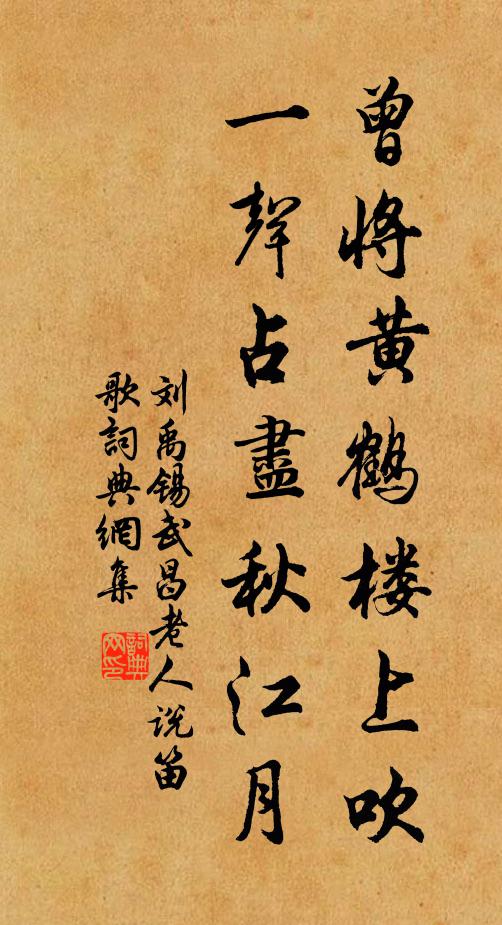 曾将黄鹤楼上吹
一聲占盡秋江月
刘禹锡武昌老人说笛
歌詞典網集
詞典网印